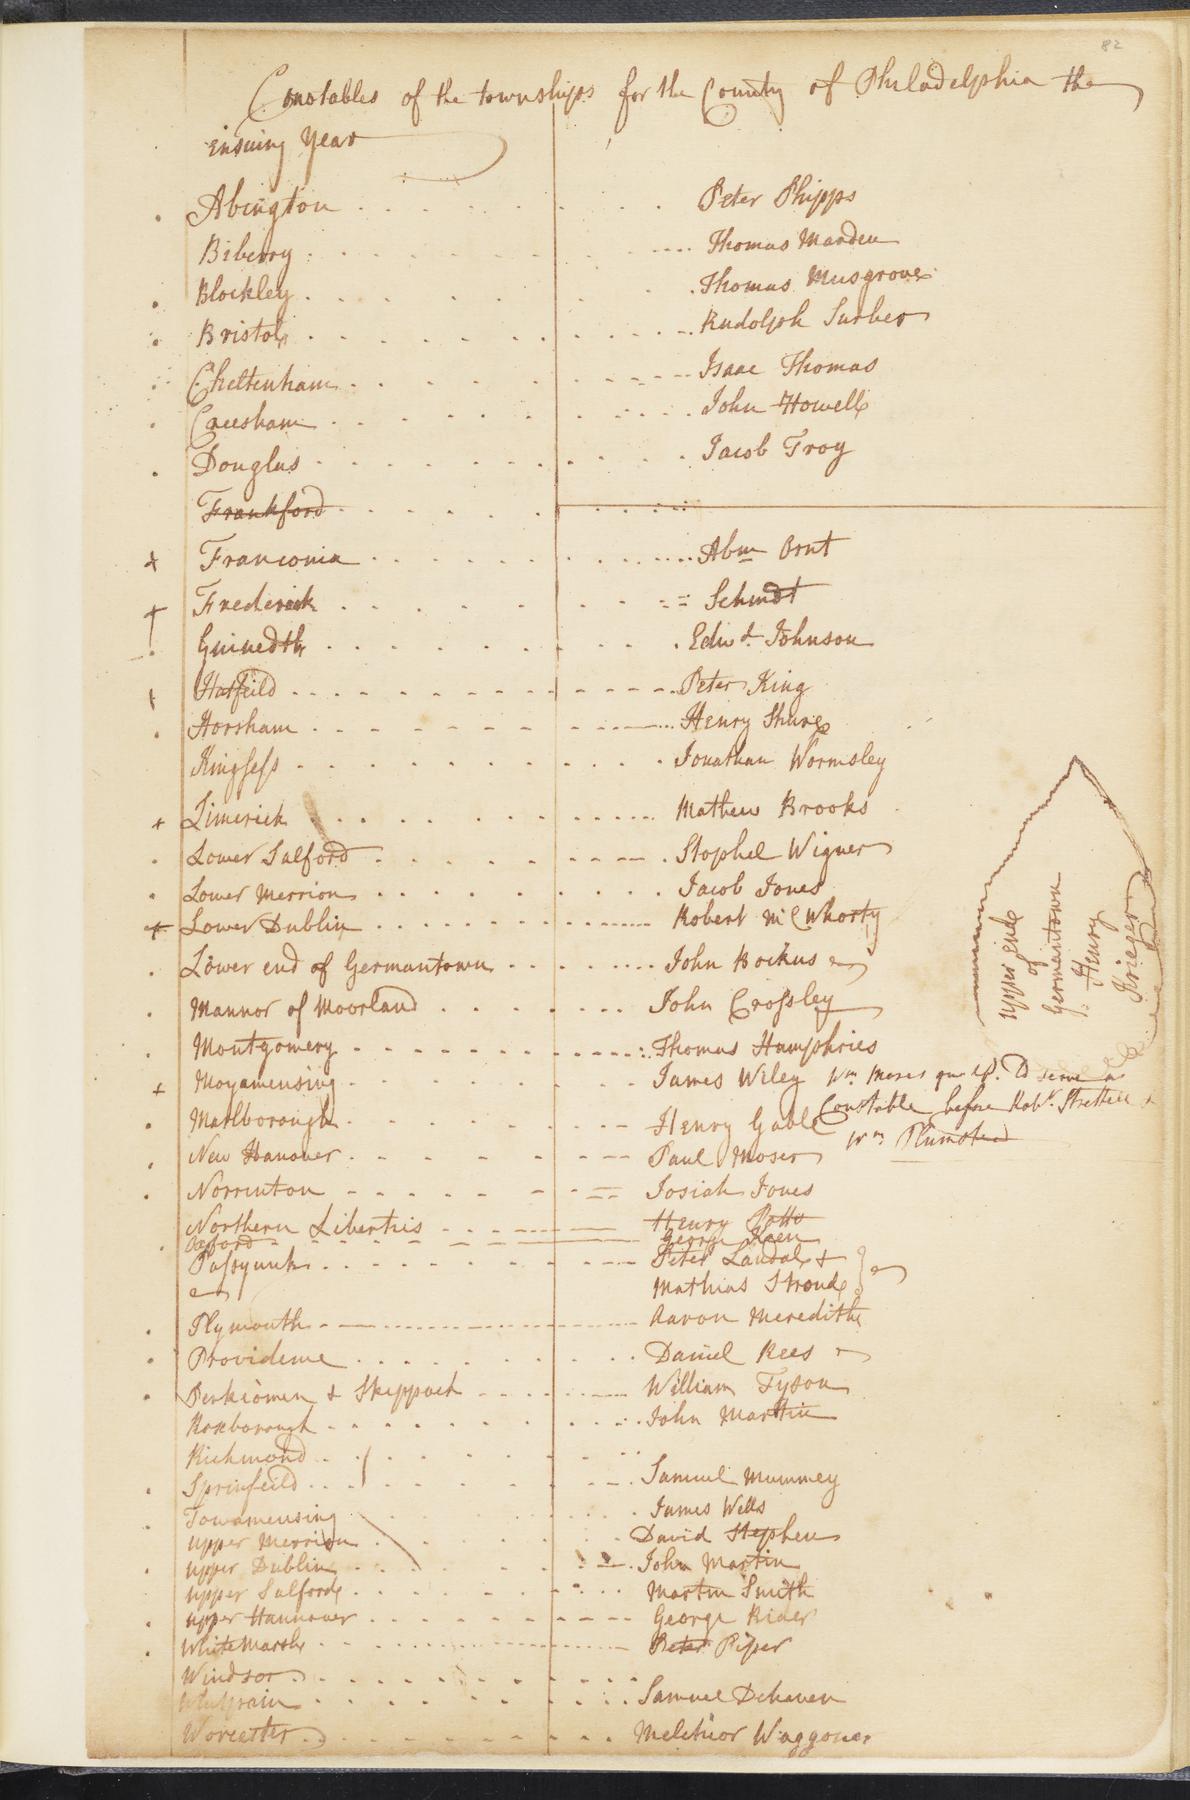 82
Constables of the townships for the County of Philadelphia the
ensuing Year
Abington Peter Phipps
Biberry Thomas Marden
Blockley Thomas Musgrove
Bristol Rudolph Surber
Cheltenham Isaac Thomas
Creesham John Howell
Douglas Jacob Troy
Frankford
Franconia Abm
Frederick Schmidt
Guinedth Edwd. Johnson
Hatfeild Peter King
Horsham Henry
Kingsess Jonathan Wormsley
Limerick Mathew Brooks
Lower Salford Stophel Wigner
Lower Merrion Jacob Jones
Lower Dublin Robert McWhorty
Lower end of Germantown John Bockus
Mannor of Moorland John Crossley
Montgomery Thomas Humphries
Moyamensing James Wiley
Marlborough Henry Gable
New Hanover Paul Moser
Norrinton Josiah Jones
Northern Liberties Henry Potts
Oxford George Keen
Passyunk Peter Landal &
Mathias Stroud
Plymouth Aaron Meredith
Providence Daniel Rees
Perkiomen & Skippack William Tyson
Roxborough John Martin
Richmond
Sprinfeild Samuel Mummey
Towamensing James Wells
Upper Merrion David Stephens
Upper Dublin John Martin
Upper Salford Martin Smith
Upper Hannover George Rider
White Marsh Peter Piper
Windsor
Whitpain Samuel Dehaven
Worcester Melchior Waggoner
upper end
of
Germantown
Henry
Krieger
Wm to serve as
Constable before Robt. Strettell &
Wm Plumsted